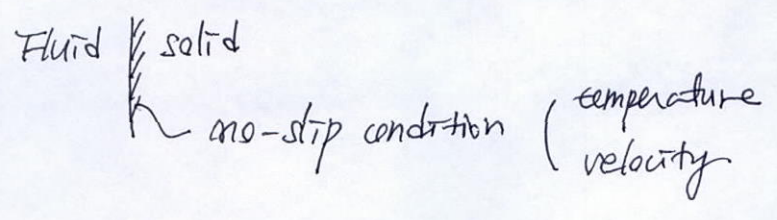 Fluid solid
no-slip condition ( temperature
velocity